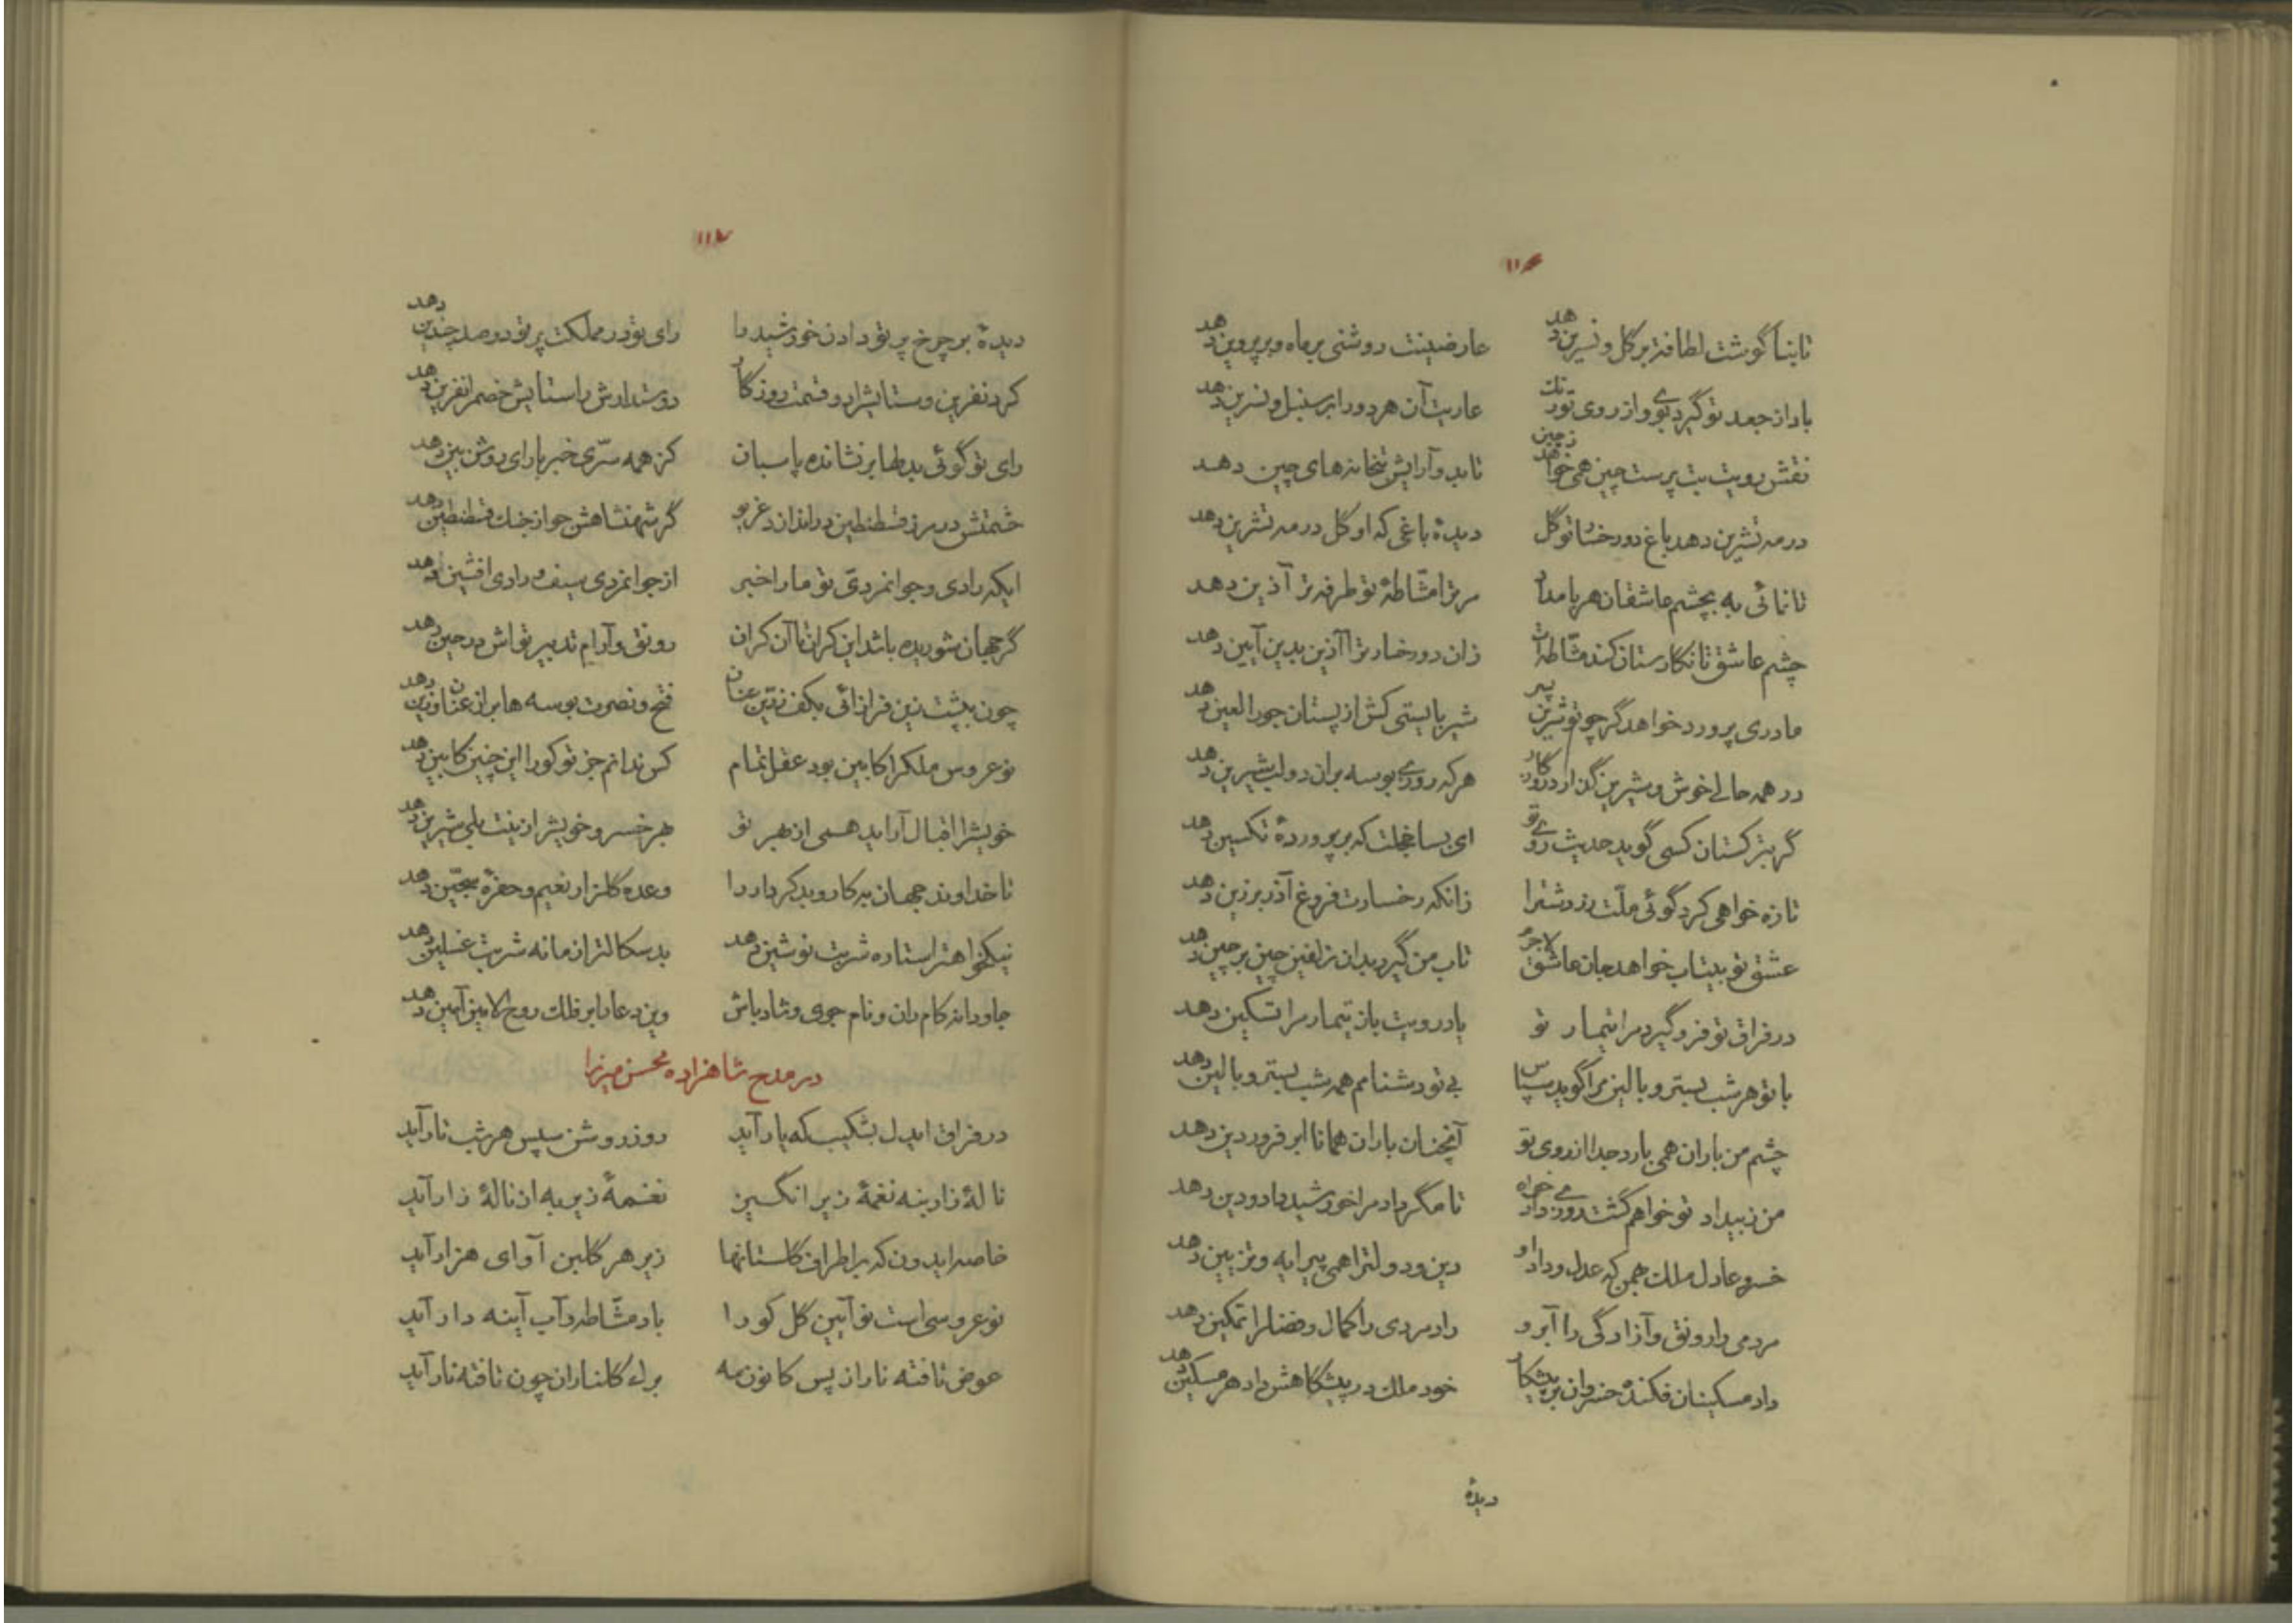 ۱۱۶
تا بناگوشت لطافت بر گل و نسرین دهد عارضینت روشنی بر ماه و بر پروین دهد
باد از جعد تو گیرد بوی و از روی تو رنگ عاریت آن هر دو را بر سنبل و نسرین دهد
نقش رویت بت پرست چین همی خواهد ز چین تا بد و آرایش بتخانه‌های چین دهد
در مه تشرین دهد باغ دو رخسار تو گل دیدهٔ باغی که او گل در مه تشرین دهد
تا نمائی به بچشم عاشقان هر بامداد مر ترا مشّاطهٔ تو طرفه تر آذین دهد
چشم عاشق تا نگارستان کند مشّاطه‌ات زان دو رخسار ترا آذین بدین آیین دهد
مادری پرورد خواهد گر چو تو شیرین پسر شیر بایستی کش از پستان حور العین دهد
در همه حالی خوش و شیرین گذارد روزگار هر که روزی بوسه بر آن دو لب شیرین دهد
گر بترکستان کسی گوید حدیث روی تو ای بسا خجلت که بر پروردهٔ تکسین دهد
تازه خواهی کرد گوئی ملّت زردشت را زانکه رخسارت فروغ آذر برزین دهد
عشق تو بیتاب خواهد جان عاشق لاجرم تاب من گیرد بدان زلفین چین بر چین دهد
در فراق تو فرو گیرد مرا تیمار تو یاد رویت باز تیمار مرا تسکین دهد
با تو هر شب بستر و بالین مرا گوید سپاس بی تو دشنامم همه شب بستر و بالین دهد
چشم من باران همی بارد جدا از روی تو آنچنان باران همانا ابر فروردین دهد
من ز بیداد تو خواهم گشت روزی داد خواه تا مگر داد مرا خورشید داد و دین دهد
خسرو عادل ملک بهمن که عدل و داد او دین و دولت را همی پیرایه و تزیین دهد
مردمی را رونق و آزادگی را آبرو رادمردی را کمال و فضل را تمکین دهد
داد مسکینان فکنده خسروان بر پیشکار خود ملک در پیشگاهش داد هر مسکین دهد
دیدهٔ
۱۱۷
دیدهٔ بر چرخ پرتو دادن خورشید را رای تو در مملکت پرتو دو صد چندین دهد
کرد نفرین و ستایش را دو قسمت روزگار دوستدارش را ستایش خصم را نفرین دهد
رای تو گوئی بدلها بر نشانده پاسبان کز همه سرّی خبر با رای روشن بین دهد
خشمتش در مرز قسطنطین در اندازد غریو گر شهنشاهش جواز جنگ قسطنطین دهد
ایکه رادی و جوانمردیّ تو ما را خبر از جوانمردی سیف و رادی افشین دهد
گر جهان شوریده باشد این کران تا آن کران رونق و آرام تدبیر تواش در حین دهد
چون بپشت زین فراز آئی بکف زرّین عنان فتح و نصرت بوسه‌ها بر آن عنان و زین دهد
نو عروس ملک را کابین بود عقل تمام کس ندانم جز تو کو را این چنین کابین دهد
خویش را اقبال آراید همی از بهر تو بهر خسرو خویش را زینت بلی شیرین دهد
تا خداوند جهان نیکار و بد کردار را وعدهٔ گلزار نعیم و حفرهٔ سجّین دهد
نیکخواهت را ستاره شربت نوشین دهد بد سگالت را زمانه شربت غسلین دهد
جاودانه کام ران و نام جوی و شاد باش وین دعا را بر فلک روح الامین آمین دهد
در مدح شاهزاده محسن میرزا
در فراق ایدل بشکیب که یار آید روز روشن سپس هر شب تار آید
نالهٔ زار بنه نغمهٔ زیر انگیز نغمهٔ زیر به از نالهٔ زار آید
خاصه ایدون که بر اطراف گلستانها زیر هر گلبن آوای هزار آید
نو عروسی است نو آیین گل کو را باد مشّاطه و آب آینه دار آید
عوض تافته نار از پس کانون مه برگ گلناران چون تافته نار آید